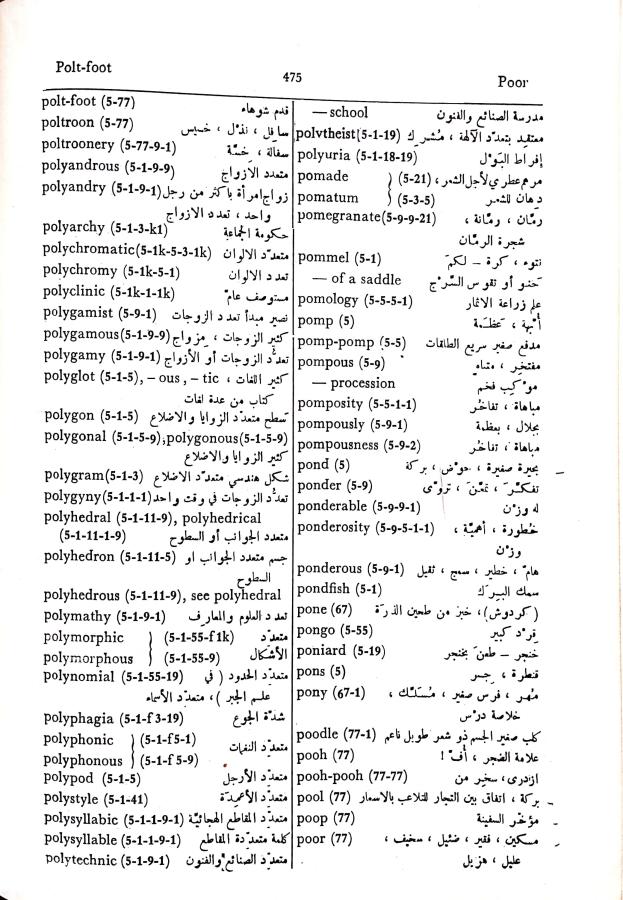 Polt-foot
475
Poor
polt-foot (5-77) قدم شوهاء
poltroon (5-77) سافل ، نذل ، خسيس
poltroonery (5-77-9-1) سفالة ، خسّة
polyandrous (5-1-9-9) متعدد الازواج
polyandry (5-1-9-1) زواج امرأة باكثر من رجل
واحد ، تعدد الازواج
polyarchy (5-1-3-k1) حكومة الجماعة
polychromatic(5-1k-5-3-1k) متعدّد الالوان
polychromy (5-1k-5-1) تعدد الالوان
polyclinic (5-1k-1-1k) مستوصف عامّ
polygamist (5-9-1) نصير مبدأ تعدد الزوجات
polygamous(5-1-9-9) كثير الزوجات ، مزواج
polygamy (5-1-9-1) تعدُّد الزوجات أو الأزواج
polyglot (5-1-5), – ous , – tic كثير اللغات ،
كتاب من عدة لغات
polygon (5-1-5) سطح متعدّد الزوايا والاضلاع
polygonal (5-1-5-9),polygonous(5-1-5-9)
كثير الزوايا والاضلاع
polygram(5-1-3) شكل هندسي متعدّد الاضلاع
polygyny(5-1-1-1) تعدُّد الزوجات في وقت واحد
polyhedral (5-1-11-9), polyhedrical
(5-1-11-1-9) متعدد الجوانب أو السطوح
polyhedron (5-1-11-5) جسم متعدد الجوانب او
السطوح
polyhedrous (5-1-11-9), see polyhedral
polymathy (5-1-9-1) تعدد العلوم والمعارف
polymorphic } (5-1-55-f1k) متعدّد
polymorphous } (5-1-55-9) الأشكال
polynomial (5-1-55-19) متعدّد الحدود ( في
علم الجبر ) ، متعدّد الأسماء
polyphagia (5-1-f 3-19) شدّة الجوع
polyphonic } (5-1-f5-1) متعدّد النغمات
polyphonous } (5-1-f 5-9)
polypod (5-1-5) متعدّد الأرجل
polystyle (5-1-41) متعدّد الأعمدة
polysyllabic (5-1-1-9-1) متعدّد المقاطع الهجائيّة
polysyllable (5-1-1-9-1) كلمة متعدّدة المقاطع
polytechnic (5-1-9-1) متعدّد الصنائع والفنون
— school مدرسة الصنائع والفنون
polvtheist(5-1-19) معتقِد بتعدّد الآلهة ، مُشرِك
polyuria (5-1-18-19) إفراط البَوْل
pomade } (5-21) مرهم عطري لأجل الشعر ،
pomatum } (5-3-5) دهان للشعر
pomegranate(5-9-9-21) رمّان ، رمّانة ،
شجرة الرمّان
pommel (5-1) نتوء ، كرة – لكمَ
— of a saddle حنو أو تقوس السَّرْج
pomology (5-5-5-1) علم زراعة الاثمار
pomp (5) أبّهة ، عظمة
pomp-pomp (5-5) مدفع صغير سريع الطلقات
pompous (5-9) مفتخِر ،
— procession موكِب فخم
pomposity (5-5-1-1) مباهاة ، تفاخُر
pompously (5-9-1) بجلال ، بعظمة
pompousness (5-9-2) مباهاة ، تفاخُر
pond (5) بحيرة صغيرة ، حوْض ، بركة
ponder (5-9) تفكّرَ ، تمعّن ، تروّى
ponderable (5-9-9-1) له وزن
ponderosity (5-9-5-1-1) خُطورة ، أهميّة ،
وزْن
ponderous (5-9-1) هامّ ، خطير ، سمج ، ثقيل
pondfish (5-1) سمك البِرَك
pone (67) (كردوش) ، خبز من طحين الذرة
pongo (5-55) قِرْد كبير
poniard (5-19) خنجر – طعنَ بخنجر
pons (5) قنطرة ، جسر
pony (67-1) مُهر ، فرس صغير ،
خلاصة درْس
poodle (77-1) كلب صغير الجسم ذو شعر طويل ناعم
pooh (77) علامة الضجر ، أُفّ !
pooh-pooh (77-77) ازدرى، سخِر من
pool (77) بركة ، اتفاق بين التجار للتلاعب بالاسعار
poop (77) مؤخّر السفينة
poor (77) مسكين ، فقير ، ضئيل ، سخيف ،
عليل ، هزيل